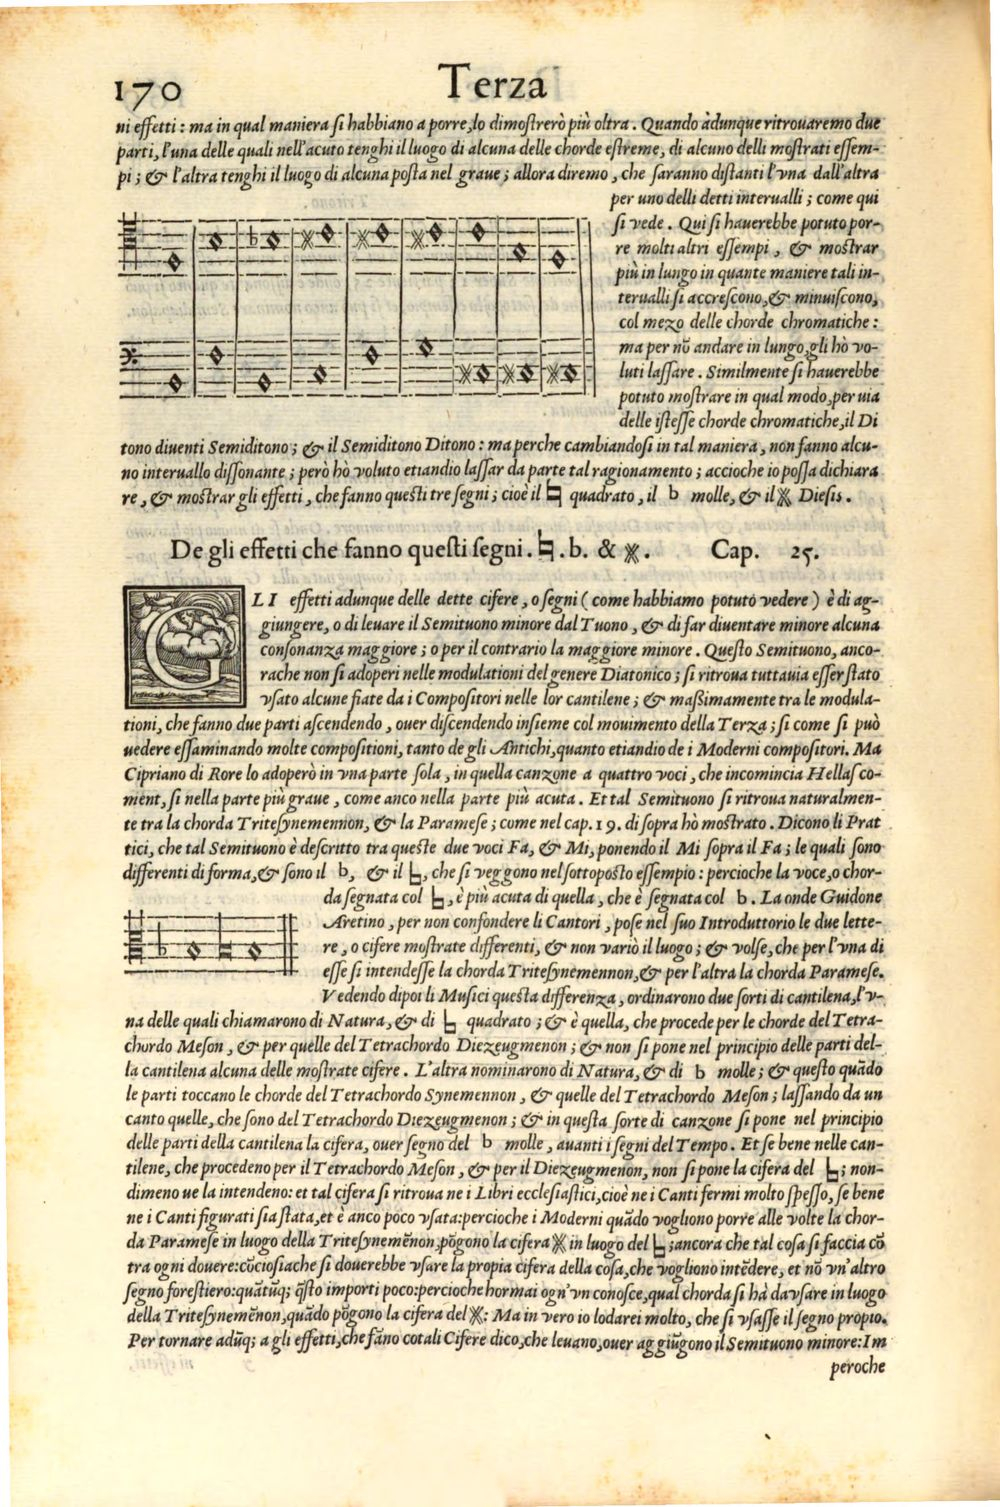 170
Terza
ni effetti : ma in qual maniera ſi habbiano a porre, lo dimoſtrerò più oltra . Quando adunque ritrouaremo due
parti, l'una delle quali nell'acuto tenghi il luogo di alcuna delle chorde eſtreme, di alcuno delli moſtrati eſſem-
pi ; & l'altra tenghi il luogo di alcuna poſta nel graue ; allora diremo , che ſaranno diſtanti l'vna dall'altra
per uno delli detti interualli ; come qui
ſi vede . Qui ſi hauerebbe potuto por-
re molti altri eſſempi , & moſtrar
più in lungo in quante maniere tali in-
terualli ſi accreſcono, & minuiſcono,
col mezo delle chorde chromatiche :
ma per nō andare in lungo, gli hò vo-
luti laſſare . Similmente ſi hauerebbe
potuto moſtrare in qual modo, per uia
delle iſteſſe chorde chromatiche, il Di
tono diuenti Semiditono ; & il Semiditono Ditono : ma perche cambiandoſi in tal maniera , non fanno alcu-
no interuallo diſſonante ; però hò voluto etiandio laſſar da parte tal ragionamento ; accioche io poſſa dichiara
re , & moſtrar gli effetti , che fanno queſti tre ſegni ; cioè il ♮ quadrato , il b molle, & il ※ Dieſis .
De gli effetti che fanno queſti ſegni . ♮ . b. & ※ . Cap. 25.
GLI effetti adunque delle dette cifere , o ſegni ( come habbiamo potuto vedere ) è di ag-
giungere, o di leuare il Semituono minore dal Tuono , & di far diuentare minore alcuna
conſonanza maggiore ; o per il contrario la maggiore minore . Queſto Semituono, anco-
rache non ſi adoperi nelle modulationi del genere Diatonico ; ſi ritroua tuttauia eſſer ſtato
vſato alcune fiate da i Compoſitori nelle lor cantilene ; & maßimamente tra le modula-
tioni, che fanno due parti aſcendendo , ouer diſcendendo inſieme col mouimento della Terza ; ſi come ſi può
uedere eſſaminando molte compoſitioni, tanto de gli Antichi, quanto etiandio de i Moderni compoſitori. Ma
Cipriano di Rore lo adoperò in vna parte ſola , in quella canzone a quattro voci , che incomincia Hellaſ co-
ment, ſi nella parte più graue , come anco nella parte più acuta . Et tal Semituono ſi ritroua naturalmen-
te tra la chorda Triteſynemennon, & la Parameſe ; come nel cap. 19. di ſopra hò moſtrato . Dicono li Prat
tici, che tal Semituono è deſcritto tra queſte due voci Fa, & Mi, ponendo il Mi ſopra il Fa ; le quali ſono
differenti di forma, & ſono il b, & il ♮, che ſi veggono nel ſottopoſto eſſempio : percioche la voce, o chor-
da ſegnata col ♮, è più acuta di quella , che è ſegnata col b . La onde Guidone
Aretino , per non confondere li Cantori , poſe nel ſuo Introduttorio le due lette-
re , o cifere moſtrate differenti, & non variò il luogo ; & volſe, che per l'vna di
eſſe ſi intendeſſe la chorda Triteſynemennon, & per l'altra la chorda Parameſe.
Vedendo dipoi li Muſici queſta differenza , ordinarono due ſorti di cantilena, l'v-
na delle quali chiamarono di Natura, & di ♮ quadrato ; & è quella, che procede per le chorde del Tetra-
chordo Meſon , & per quelle del Tetrachordo Diezeugmenon ; & non ſi pone nel principio delle parti del-
la cantilena alcuna delle moſtrate cifere . L'altra nominarono di Natura, & di b molle ; & queſto quādo
le parti toccano le chorde del Tetrachordo Synemennon , & quelle del Tetrachordo Meſon ; laſſando da un
canto quelle, che ſono del Tetrachordo Diezeugmenon ; & in queſta ſorte di canzone ſi pone nel principio
delle parti della cantilena la cifera, ouer ſegno del b molle , auanti i ſegni del Tempo . Et ſe bene nelle can-
tilene, che procedeno per il Tetrachordo Meſon , & per il Diezeugmenon, non ſi pone la cifera del ♮ ; non-
dimeno ue la intendeno: et tal cifera ſi ritroua ne i Libri eccleſiaſtici, cioè ne i Canti fermi molto ſpeſſo, ſe bene
ne i Canti figurati ſia ſtata, et è anco poco vſata: percioche i Moderni quādo vogliono porre alle volte la chor-
da Parameſe in luogo della Triteſynemēnon, pōgono la cifera ※ in luogo del ♮ ; ancora che tal coſa ſi faccia cō
tra ogni douere: cōcioſiache ſi douerebbe vſare la propia cifera della coſa, che vogliono intēdere, et nō vn'altro
ſegno foreſtiero: quātūq; q̄ſto importi poco: percioche hormai ogn'vn conoſce, qual chorda ſi hà da vſare in luogo
della Triteſynemēnon, quādo pōgono la cifera del ※ : Ma in vero io lodarei molto, che ſi vſaſſe il ſegno propio.
Per tornare adūq; a gli effetti, che fāno cotali Cifere dico, che leuano, ouer aggiūgono il Semituono minore: Im
peroche